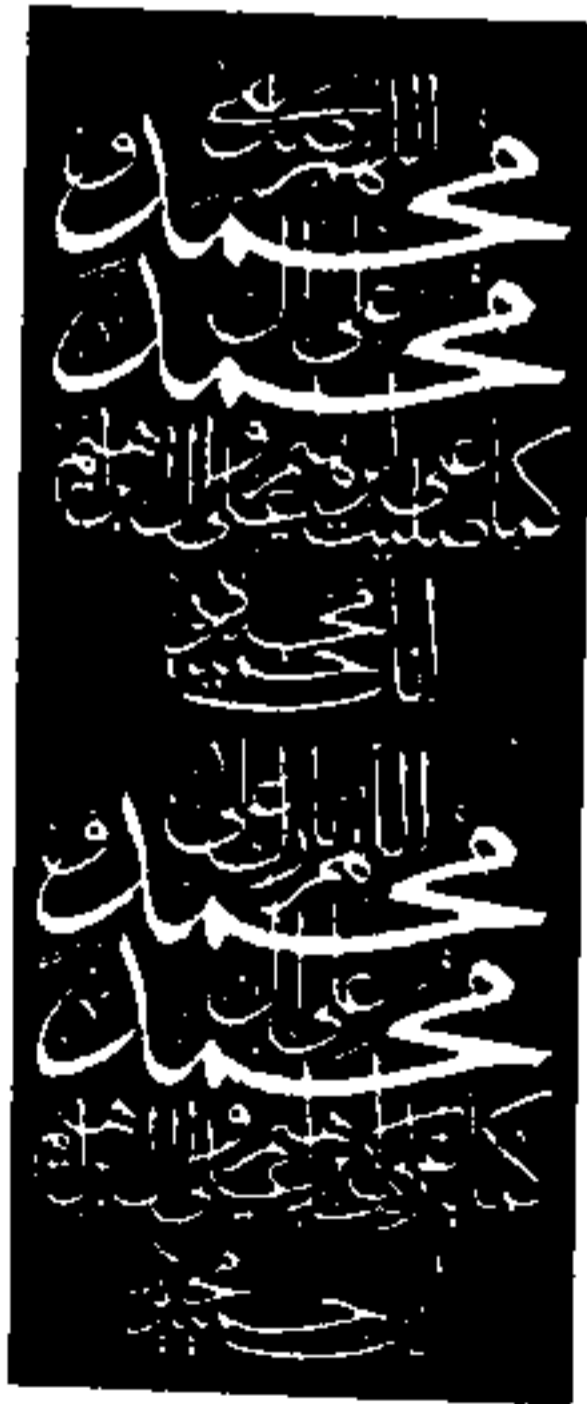 اللهم صل على
محمد و
على آل محمد
كما صليت على إبراهيم وعلى آل إبراهيم
إنك حميد مجيد
اللهم بارك على
محمد و
على آل محمد
كما باركت على إبراهيم وعلى آل إبراهيم
حميد مجيد